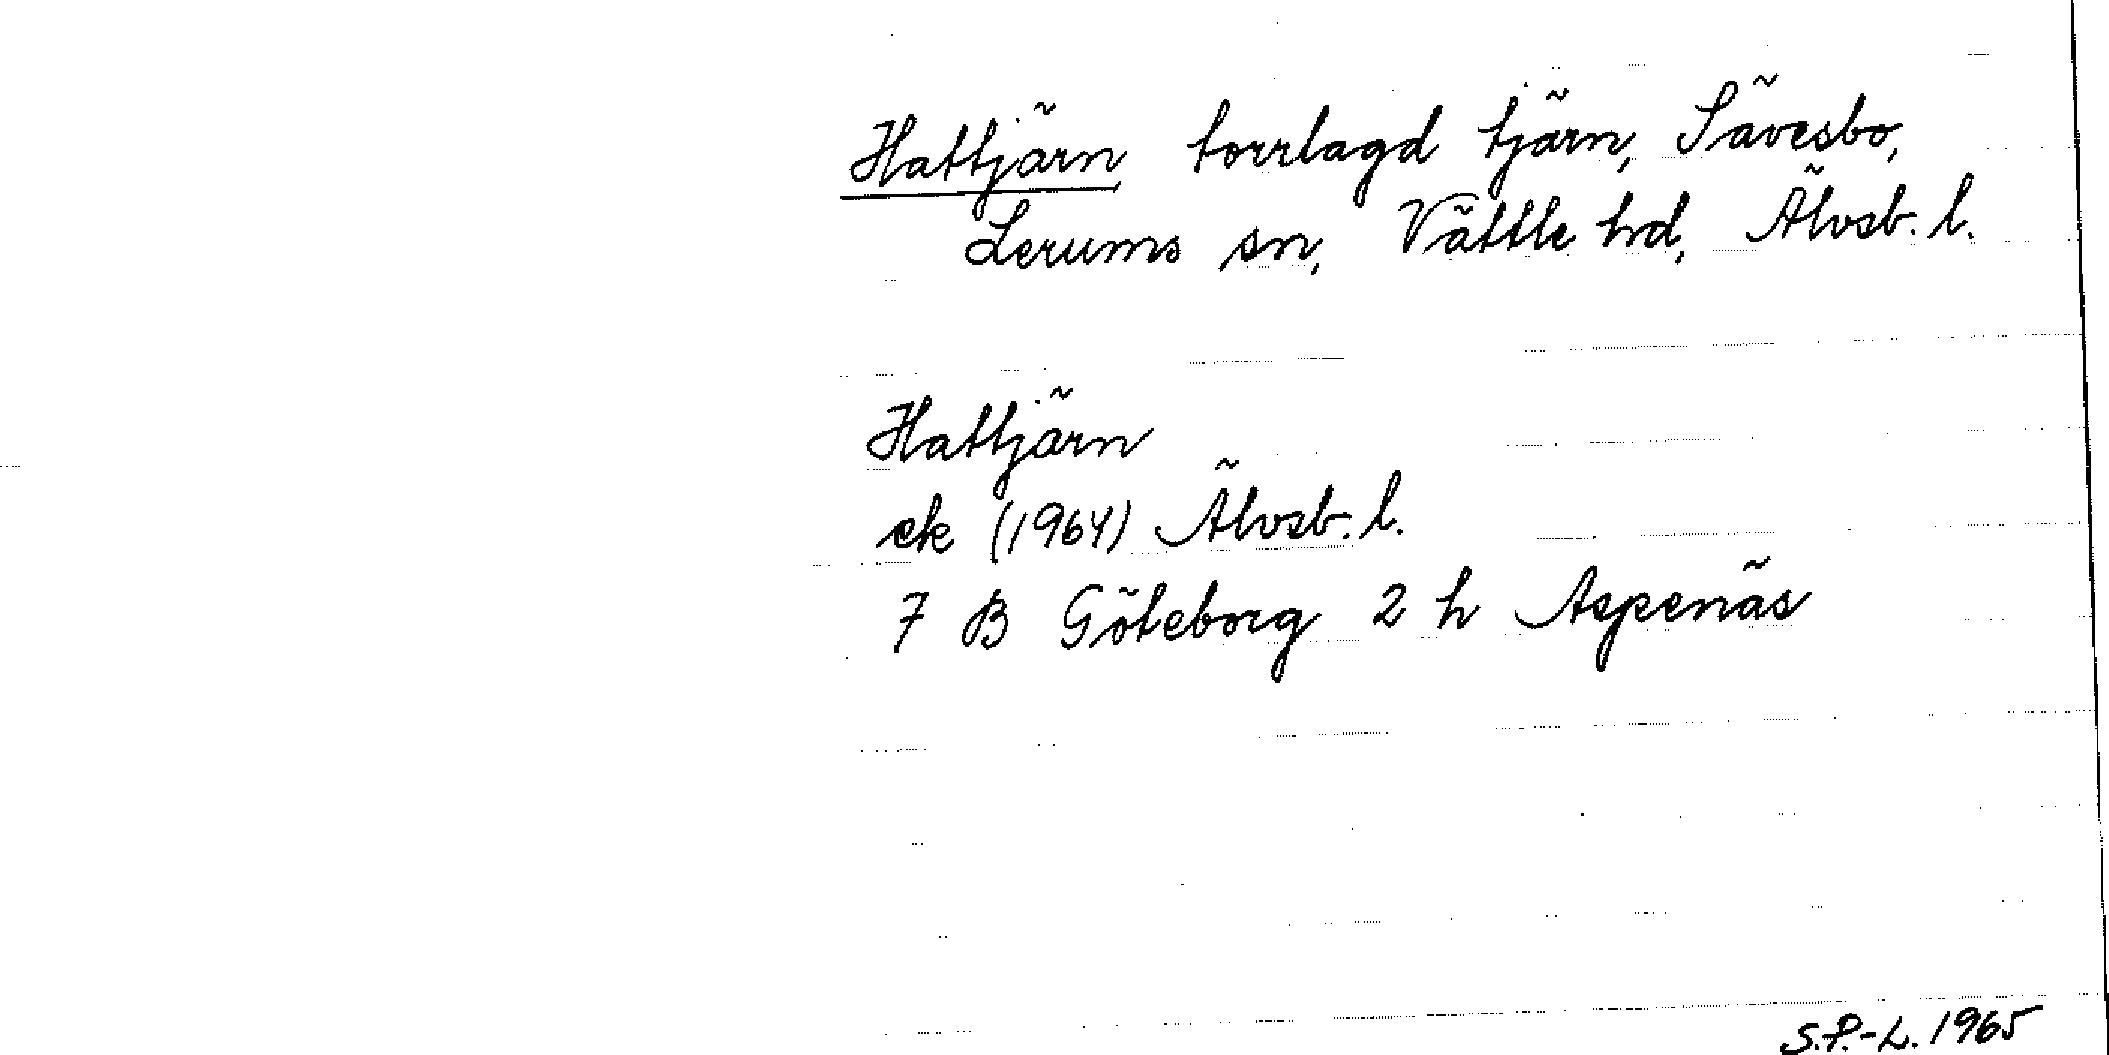 Hattjärn torrlagd tjärn, Sävesbo,
Lerums sn, Vättle hd, Älvsb. l.
Hattjärn
ek (1964) Älvsb. l.
7 B Göteborg 2 h Aspenäs
S.P.-L. 1965